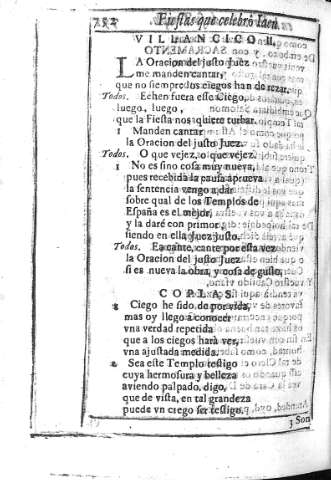 252 Fiestas que celebró Iaen.
VILLANCICO II.
LA Oracion del justo Juez
me manden cantar,
que no siempre los ciegos han de rezar.
Todos. Echen fuera esse Ciego,
luego, luego,
que la Fiesta nos quiere turbar.
1 Manden cantar
la Oracion del justo Juez.
Todos. O que vejez, o que vejez.
1 No es sino cosa muy nueva,
pues recebida la causa a prueva
la sentencia vengo a dàr
sobre qual de los Templos de
España es el mejor,
y la darè con primor,
siendo en ella Juez justo.
Todos. Ea cante, cante por esta vez
la Oracion del justo Juez
si es nueva la obra, y cosa de gusto.
COPLAS.
Ciego he sido de por vida,
mas oy llego a conocer
vna verdad repetida
que a los ciegos harà ver,
vna ajustada medida.
2 Sea este Templo testigo
cuya hermosura y belleza
aviendo palpado, digo,
que de vista, en tal grandeza
puede vn ciego ser testigo.
3 Son